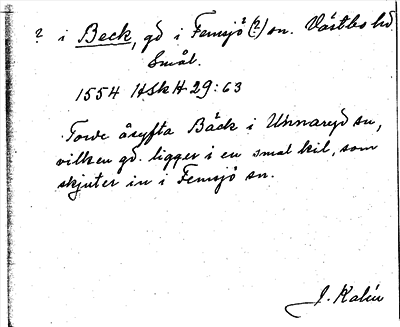 ? i Beck, gd i Femsjö (?) sn. Västbo hd
Smål.
1554 HSkH 29:63
Torde åsyfta Bäck i Unnaryd sn,
vilken gd. ligger i en smal kil, som
skjuter in i Femsjö sn.
J. Kalén